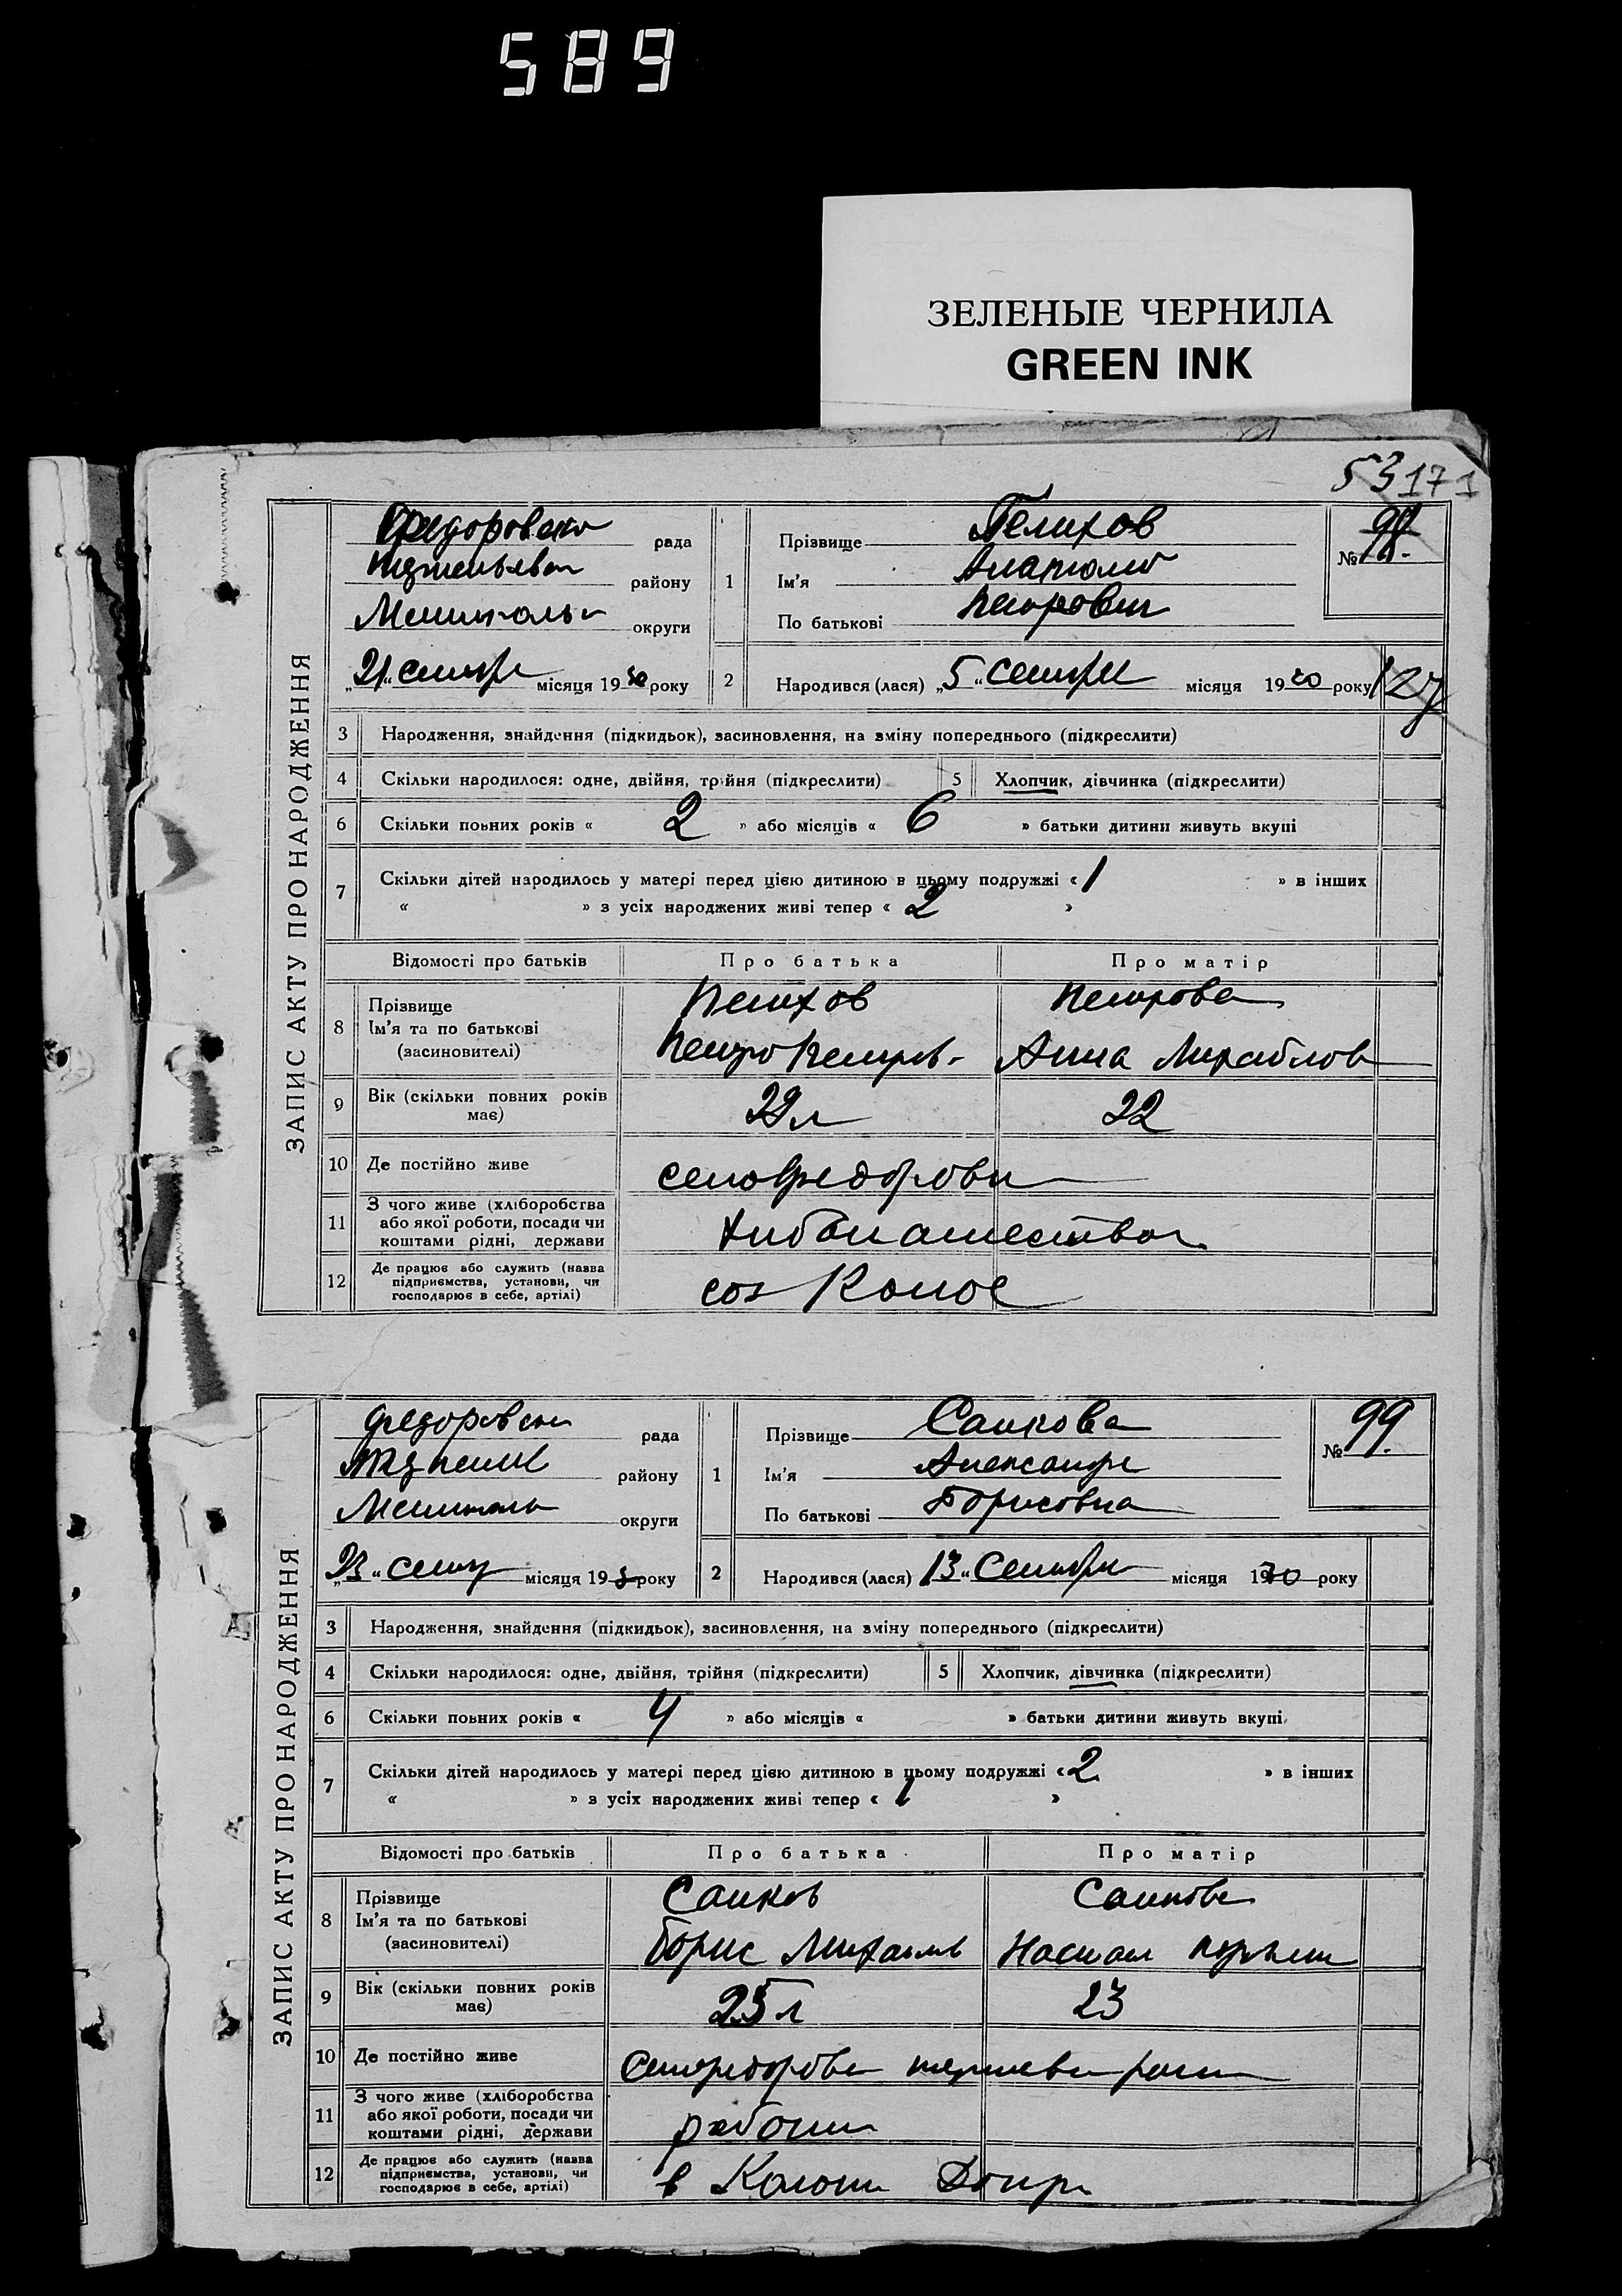 589
ЗЕЛЕНЫЕ ЧЕРНИЛА
GREEN INK
53 171
ЗАПИС АКТУ ПРО НАРОДЖЕННЯ
рада
району
округи
1 Прізвище
Ім'я Анатолий
По батькові Петрович
№ 98.
„21“ сентяр місяця 1930 року
2 Народився (лася) „5“ сентяри місяця 1930 року
127
3 Народження, знайдення (підкидьок), засиновлення, на зміну попереднього (підкреслити)
4 Скільки народилося: одне, двійня, трійня (підкреслити) 5 Хлопчик, дівчинка (підкреслити)
6 Скільки повних років « 2 » або місяців « 6 » батьки дитини живуть вкупі
7 Скільки дітей народилось у матері перед цією дитиною в цьому подружжі « 1 » в інших
« » з усіх народжених живі тепер « 2 »
Відомості про батьків Про батька Про матір
8 Прізвище
Ім'я та по батькові Петро Петров- Анна
(засиновителі)
9 Вік (скільки повних років має) 22л 22
10 Де постійно живе
11 З чого живе (хліборобства або якої роботи, посади чи коштами рідні, держави
12 Де працює або служить (назва підприємства, установи, чи господарює в себе, артілі) соз Колос
ЗАПИС АКТУ ПРО НАРОДЖЕННЯ
рада
району
округи
1 Прізвище Саикова
Ім'я Александра
По батькові Борисовна
№ 99.
„23“ сент місяця 193 року
2 Народився (лася) 13 „ Сентября місяця 1930 року
3 Народження, знайдення (підкидьок), засиновлення, на зміну попереднього (підкреслити)
4 Скільки народилося: одне, двійня, трійня (підкреслити) 5 Хлопчик, дівчинка (підкреслити)
6 Скільки повних років « 4 » або місяців « » батьки дитини живуть вкупі
7 Скільки дітей народилось у матері перед цією дитиною в цьому подружжі « 2 » в інших
« » з усіх народжених живі тепер « 1 »
Відомості про батьків Про батька Про матір
8 Прізвище Саиков Саикова
Ім'я та по батькові Борис
(засиновителі)
9 Вік (скільки повних років має) 25л 23
10 Де постійно живе
11 З чого живе (хліборобства або якої роботи, посади чи коштами рідні, держави
12 Де працює або служить (назва підприємства, установи, чи господарює в себе, артілі) в